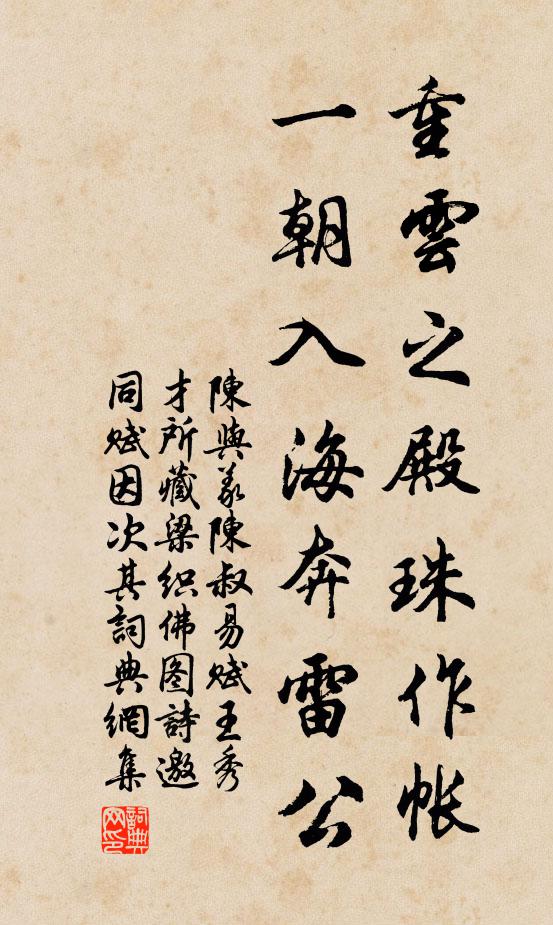 重雲之殿珠作帳
一朝入海奔雷公
陳與义陳叔易賦王秀
才所藏梁织佛图詩邀
同赋因次其詞典網集
詞典
网印